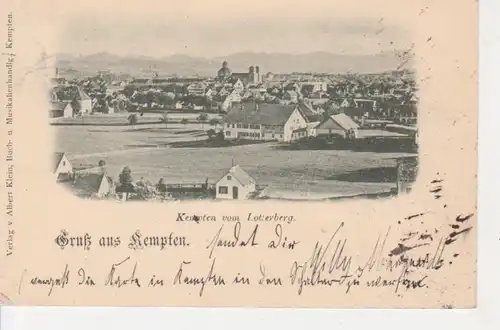 Verlag v. Albert Klein, Buch- u. Musikalienhandlg., Kempten.
Kempten vom Lotterberg.
Gruß aus Kempten.
sendet Dir Willy
vergeß die Karte in Kempten in den Schalter zu werfen.